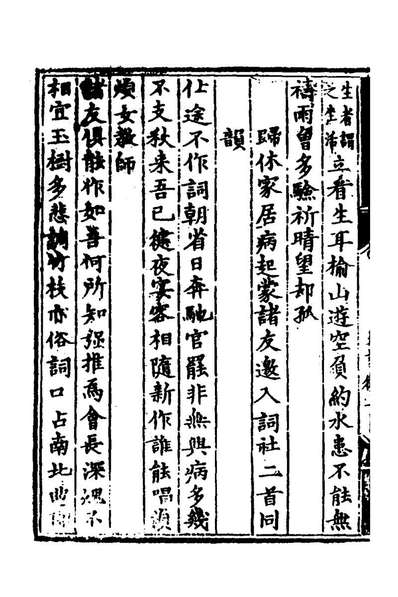 生者謂
之
立看生耳榆山遊空負約水患不能無
禱雨曾多驗祈晴望却孤
歸休家居病起蒙諸友邀入詞社二首同
韻
仕途不作詞朝省日奔馳官罷非無興病多幾
不支秋来吾已夜宴客相隨新作誰能唱須
煩女教師
諸友俱能作如善何所知强推爲會長深愧不
相宜玉樹多悲調竹枝亦俗詞口占南北曲